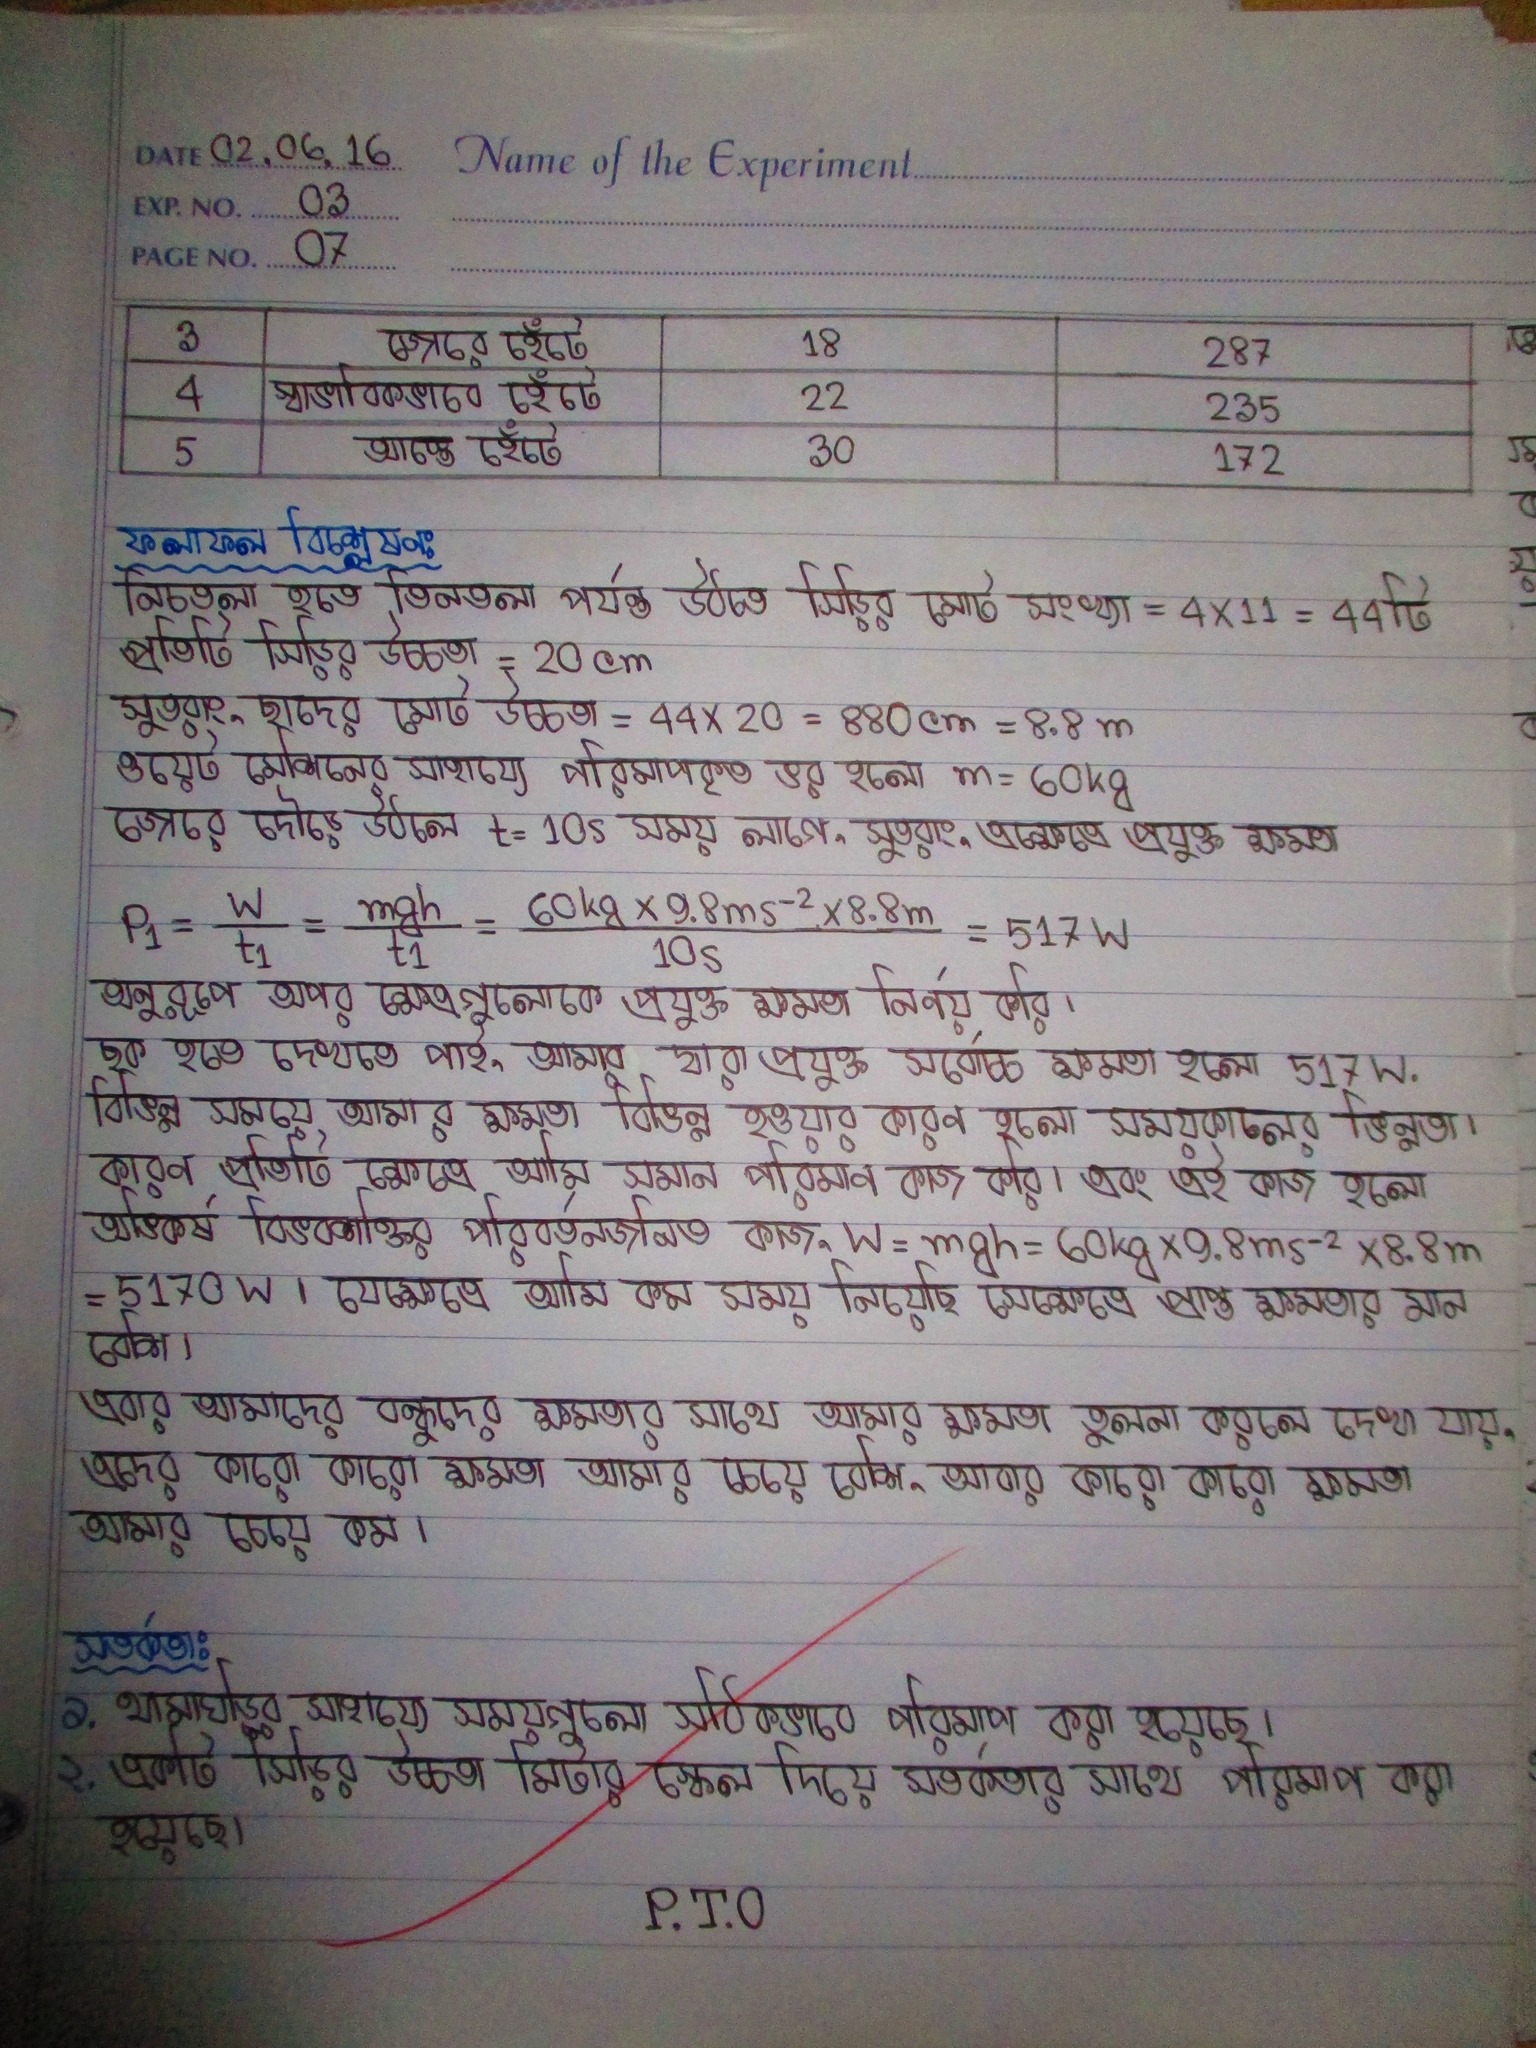 DATE 02.06.16 Name of the Experiment
EXP. NO. 03
PAGE NO. 07
3 জোরে হেঁটে 18 287
4 স্বাভাবিকভাবে হেঁটে 22 235
5 আস্তে হেঁটে 30 172
ফলাফল বিশ্লেষনঃ
নিচতলা হতে তিনতলা পর্যন্ত উঠতে সিড়ির মোট সংখ্যা = 4×11 = 44টি
প্রতিটি সিড়ির উচ্চতা = 20cm
সুতরাং, ছাদের মোট উচ্চতা = 44×20 = 880cm = 8.8m
ওয়েট মেশিনের সাহায্যে পরিমাপকৃত ভর হলো m = 60kg
জোরে দৌড়ে উঠলে t = 10s সময় লাগে, সুতরাং, এক্ষেত্রে প্রযুক্ত ক্ষমতা
P₁ = W/t₁ = mgh/t₁ = 60kg × 9.8ms⁻² × 8.8m / 10s = 517W
অনুরূপে অপর ক্ষেত্রগুলোকে প্রযুক্ত ক্ষমতা নির্ণয় করি।
ছক হতে দেখতে পাই, আমার দ্বারা প্রযুক্ত সর্বোচ্চ ক্ষমতা হলো 517W.
বিভিন্ন সময়ে আমার ক্ষমতা বিভিন্ন হওয়ার কারণ হলো সময়কালের ভিন্নতা।
কারণ প্রতিটি ক্ষেত্রে আমি সমান পরিমাণ কাজ করি। এবং এই কাজ হলো
অভিকর্ষ বিভবশক্তির পরিবর্তনজনিত কাজ, W = mgh = 60kg×9.8ms⁻² ×8.8m
= 5170W। যেক্ষেত্রে আমি কম সময় নিয়েছি সেক্ষেত্রে প্রাপ্ত ক্ষমতার মান
বেশি।
এবার আমাদের বন্ধুদের ক্ষমতার সাথে আমার ক্ষমতা তুলনা করলে দেখা যায়,
এদের কারো কারো ক্ষমতা আমার চেয়ে বেশি, আবার কারো কারো ক্ষমতা
আমার চেয়ে কম।
সতর্কতাঃ
১. থামাঘড়ির সাহায্যে সময়গুলো সঠিকভাবে পরিমাপ করা হয়েছে।
২. একটি সিড়ির উচ্চতা মিটার স্কেল দিয়ে সতর্কতার সাথে পরিমাপ করা
হয়েছে।
P.T.O